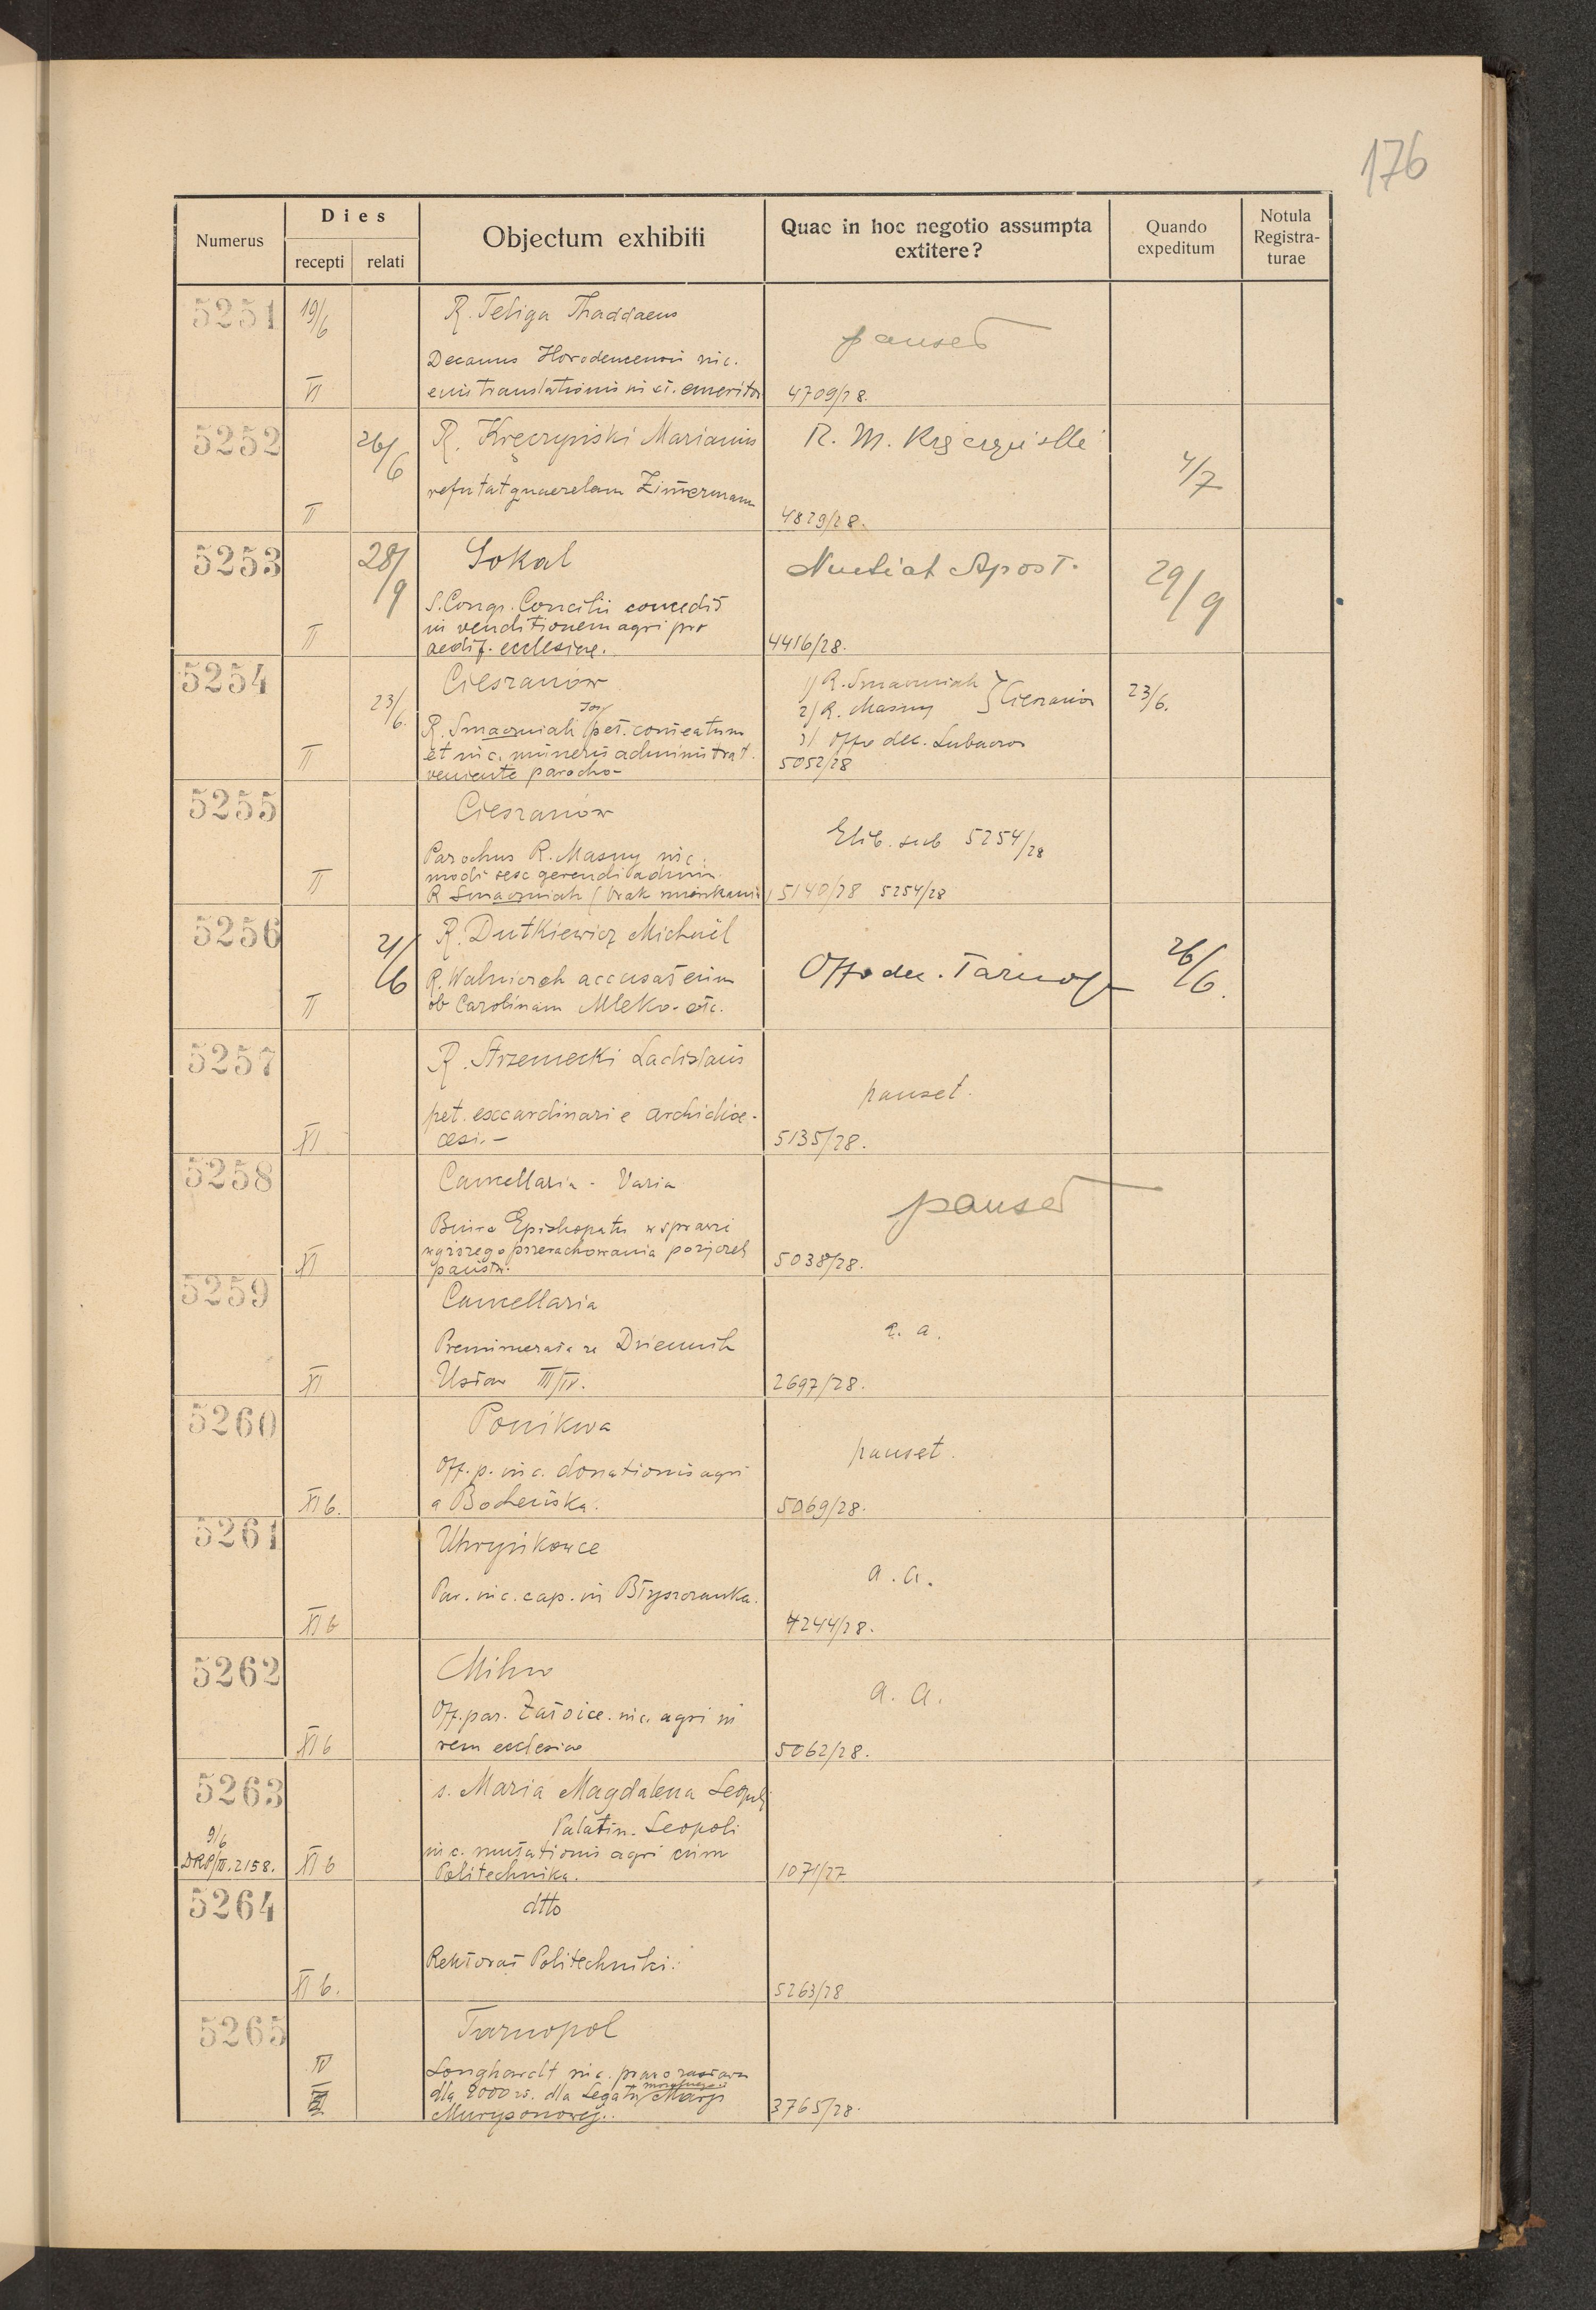 176
Numerus
Dies
recepti relati
Objectum exhibiti
Quae in hoc negotio assumpta
extitere?
Quando
expeditum
Notula
Registra-
turae
5251 19/6 R. Teliga Thaddaeus
pauset
Decanus Horodencensis nic.
VI eius translationis in st. emeritor 4709/28.
5252 26/6 R. Kręczyński Marianus R. M.
4/7
refutat quaerelam Zimermann
II 4829/28.
5253 28/9 Sokal Nuntiat Apost. 29/9
S. Congr. Concilii concedit
in venditionem agri pro
II aedif. ecclesiae. 4416/28.
5254 23/6. Cieszanów
1) R. Smaczniak
2) R. Masny } Cieszanów 23/6.
3) Offo dec. Lubaczov
R. Smaczniak Jos pet. comeatum
et nic. muneris administrat.
II veniente parocho- 5052/28
5255 Cieszanów
Elib. sub 5254/28
Parochus R. Masny nic.
modi sese gerendi admin.
II R Smaczniak (brak mieszkania) 5140/28 5254/28
5256 21/6 R. Dutkiewicz Michaël
Offo dec. Tarnop 26/6.
R. Walniczek accusat eum
II ob Carolinam Mleko. etc.
5257 R. Strzemecki Ladislaus
pauset.
pet. excardinari e archidioe-
XI cesi.- 5135/28.
5258 Cancellaria - Varia
pauset
Biuro Episkopatu w sprawi
wyższego przerachowania pożyczek
XI państw. 5038/28.
5259 Cancellaria
a. a.
Prenumerata za Dziennik
XI Ustaw III/IV. 2697/28.
5260 Ponikwa
pauset.
Off. p. nic. donationis agri
XI b. a Bocheńska. 5069/28.
5261 Uhryńkowce
a. a.
Par. nic. cap. in Błyszczanka.
XI b 4244/28.
5262 Milno
a. a.
Off. par. Załoice. nic. agri in
XI b rem ecclesiae 5062/28.
5263 s. Maria Magdalena Leopoli
Palatin. Leopoli
9/6
nic. mutationis agri cum
DRP/III. 2158. XI b Politechnika. 1071/27
5264 dtto
Rektorat Politechniki.
XI b. 5263/28
5265 Tarnopol
IV Longhardt nic. prawo zastawu
dla 2000 zł. dla Legatu Marji
3765/28.